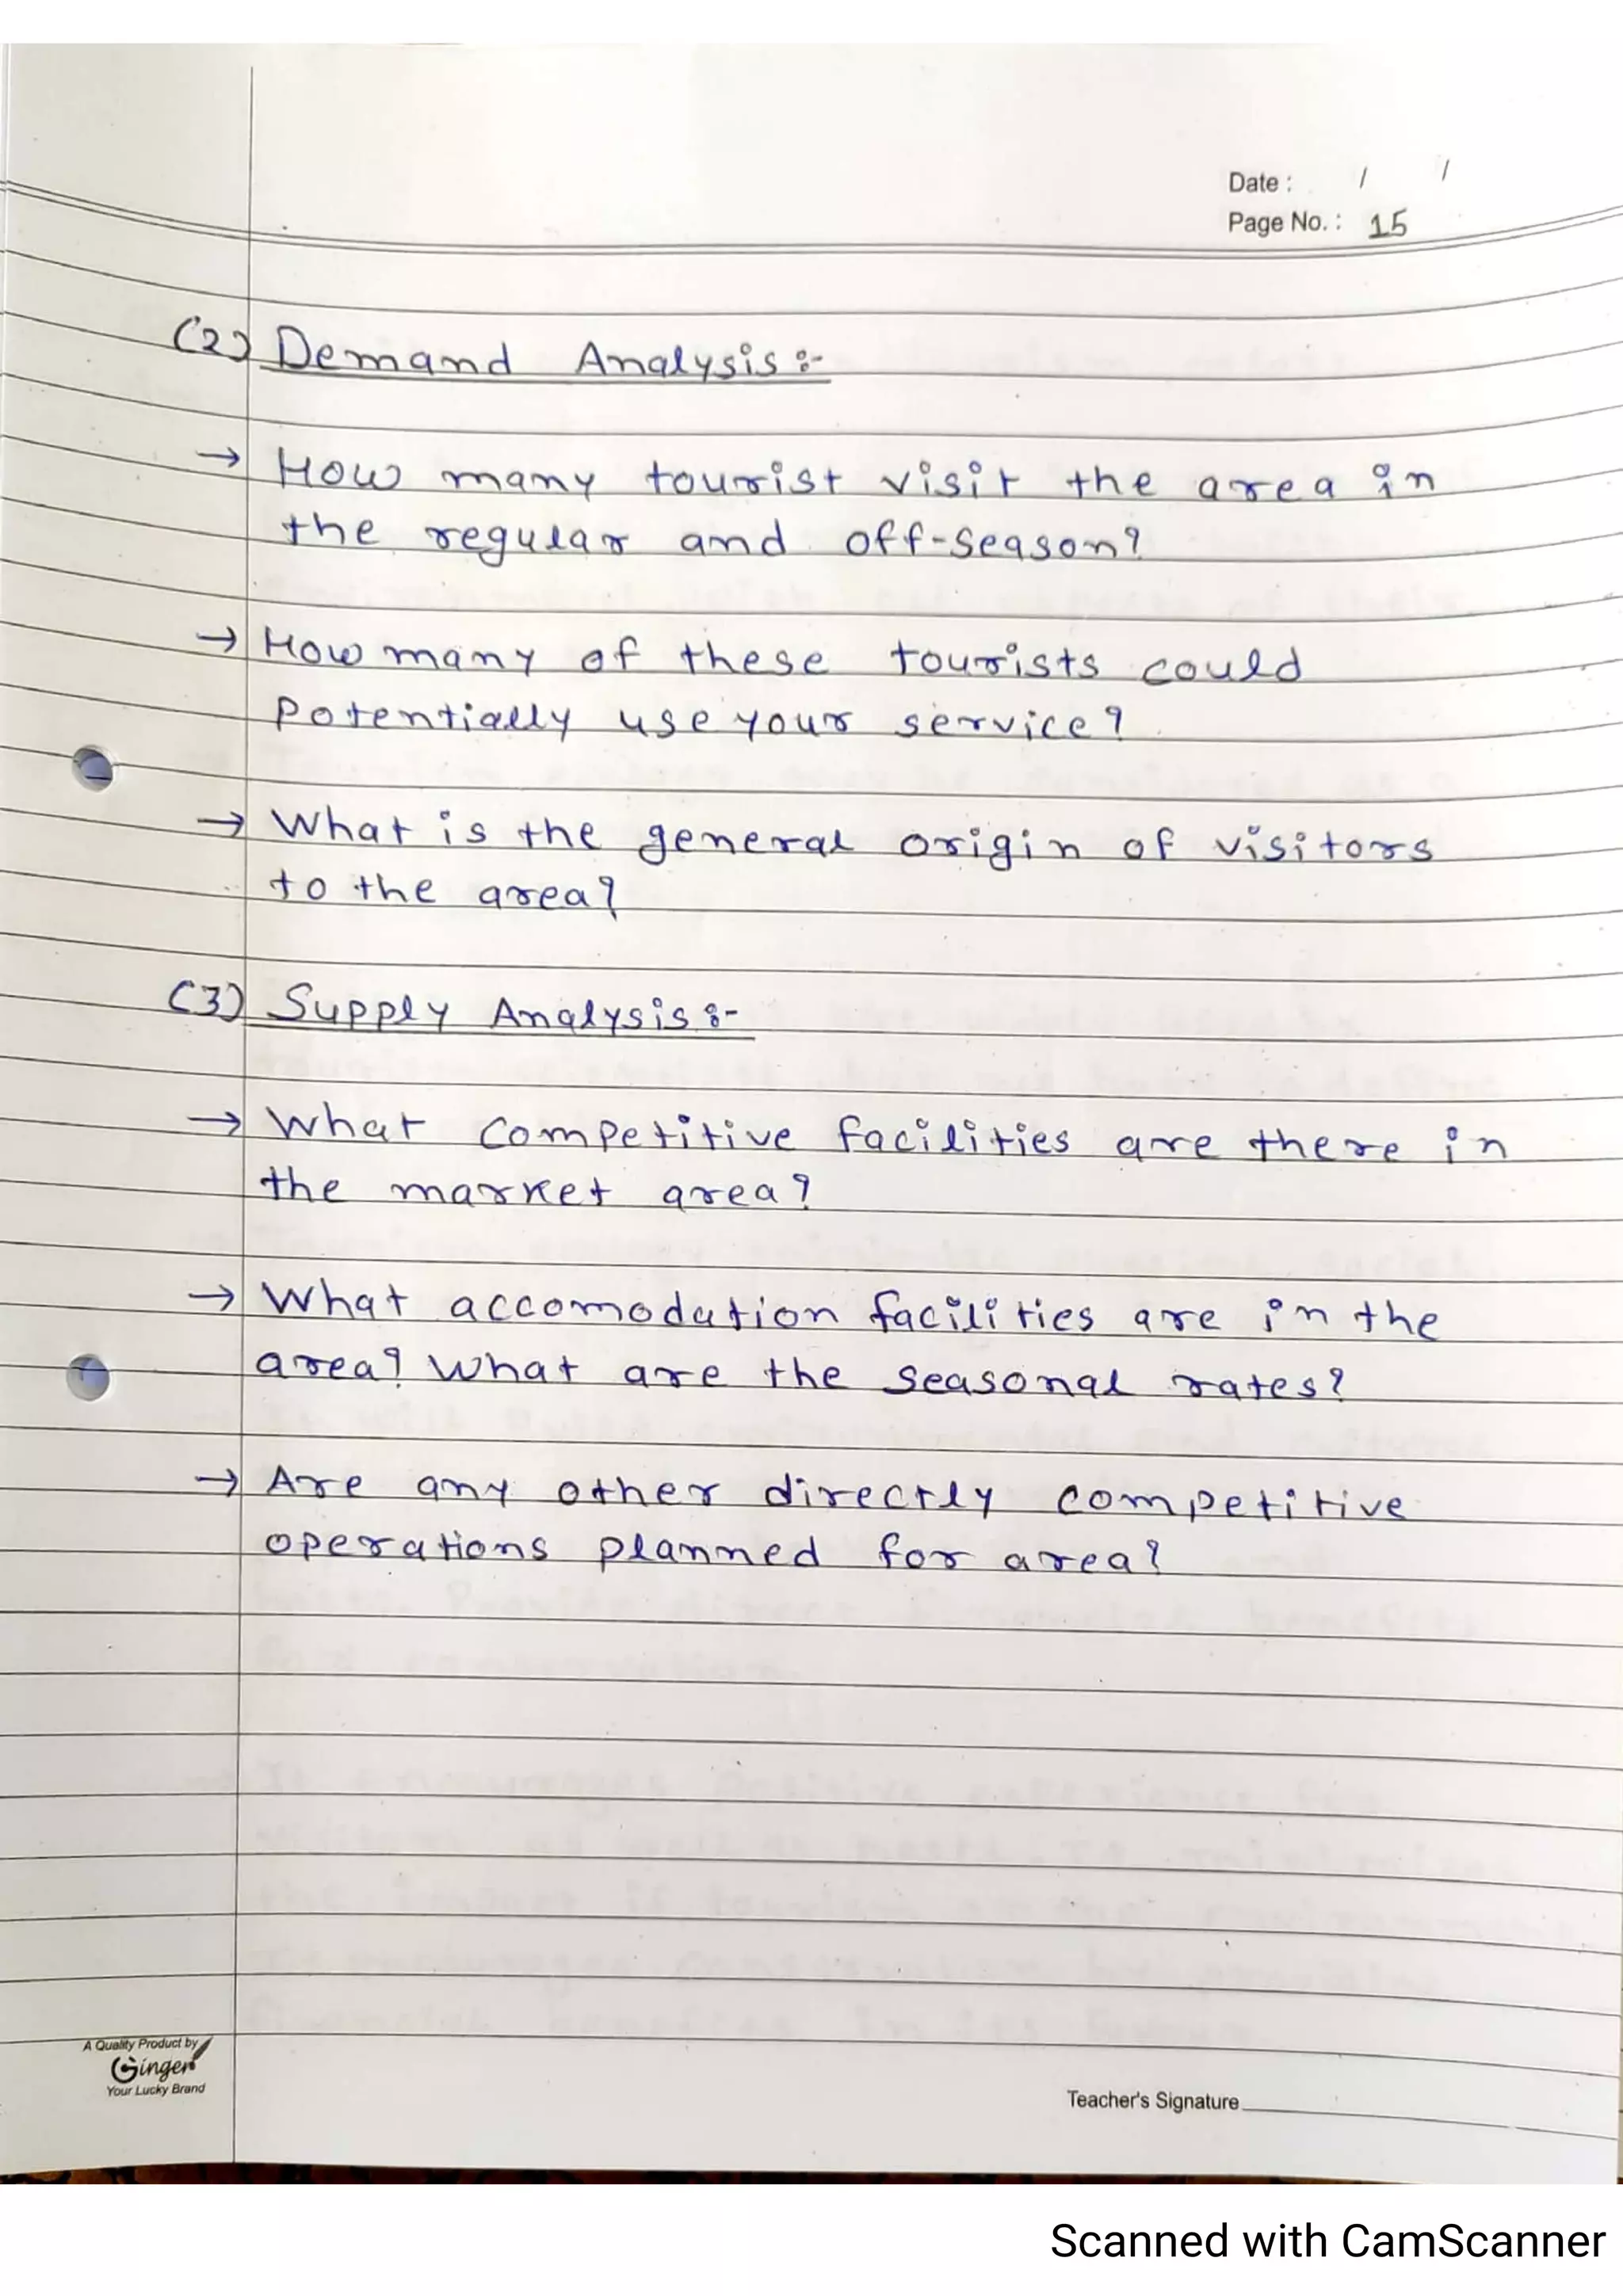 Date : / /
Page No. : 15
(2) Demand Analysis :-
→ How many tourist visit the area in
the regular and off-season?
→ How many of these tourists could
potentially use your service?
→ What is the general origin of visitors
to the area?
(3) Supply Analysis :-
→ What competitive facilities are there in
the market area?
→ What accomodation facilities are in the
area? What are the seasonal rates?
→ Are any other directly competitive
operations planned for area?
A Quality Product by
Ginger
Your Lucky Brand
Teacher's Signature
Scanned with CamScanner